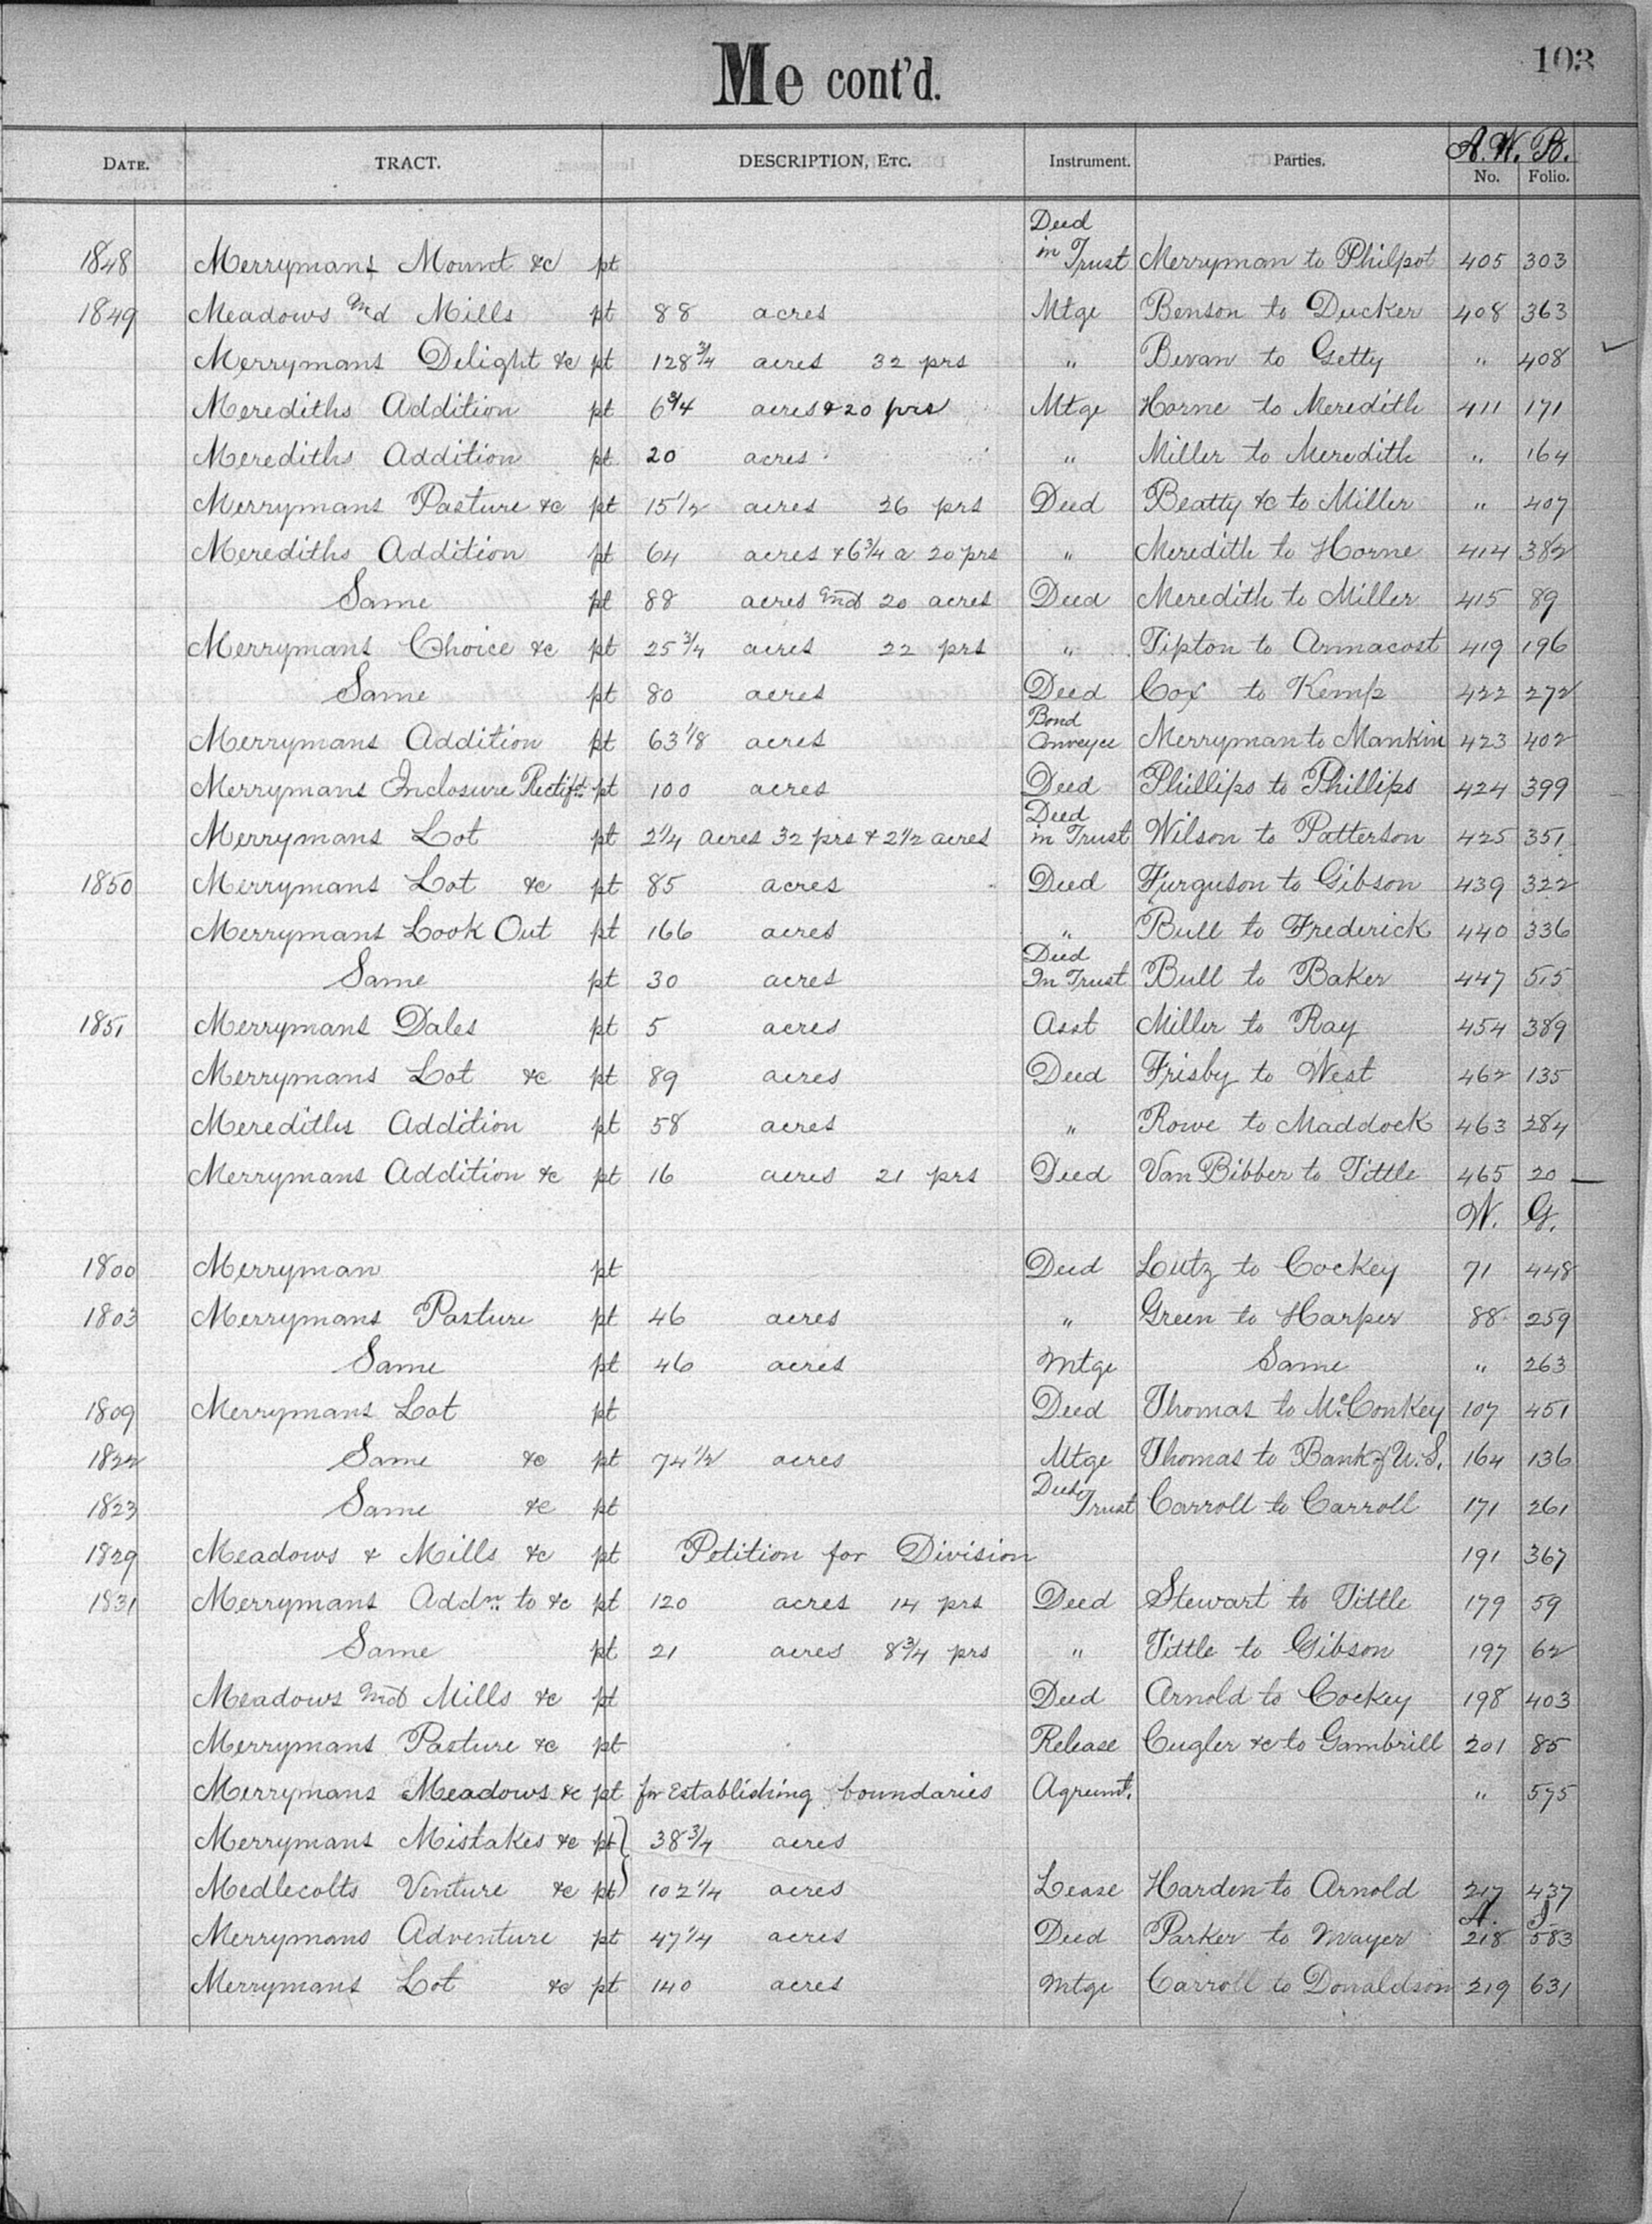 103
Me cont'd.
DATE. TRACT. DESCRIPTION, ETC. Instrument. Parties. A. W. B. No. Folio.
1848 Merrymans Mount &c pt Deed in Trust Merryman to Philpot 405 303
1849 Meadows and Mills pt 88 acres Mtge Benson to Ducker 408 363
Merrymans Delight &c pt 128 3/4 acres 32 prs " Bevan to Getty " 408
Merediths Addition pt 6 3/4 acres & 20 prs Mtge Horne to Meredith 411 171
Merediths Addition pt 20 acres " Miller to Meredith " 164
Merrymans Pasture &c pt 15 1/2 acres 26 prs Deed Beatty &c to Miller " 407
Merediths Addition pt 64 acres & 6 3/4 a 20 prs " Meredith to Horne 414 382
Same pt 88 acres and 20 acres Deed Meredith to Miller 415 89
Merrymans Choice &c pt 25 3/4 acres 22 prs " Tipton to Armacost 419 196
Same pt 80 acres Deed Cox to Kemp 422 272
Merrymans Addition pt 63 1/8 acres Bond Conveyce Merryman to Mankin 423 402
Merrymans Inclosure Rectifd. pt 100 acres Deed Phillips to Phillips 424 399
Merrymans Lot pt 2 1/4 acres 32 prs & 2 1/2 acres Deed in Trust Wilson to Patterson 425 351
1850 Merrymans Lot &c pt 85 acres Deed Furguson to Gibson 439 322
Merrymans Look Out pt 166 acres " Bull to Frederick 440 336
Same pt 30 acres Deed In Trust Bull to Baker 447 515
1851 Merrymans Dales pt 5 acres Asst Miller to Ray 454 389
Merrymans Lot &c pt 89 acres Deed Frisby to West 462 135
Merediths Addition pt 58 acres " Rowe to Maddock 463 284
Merrymans Addition &c pt 16 acres 21 prs Deed Van Bibber to Tittle 465 20
W. G.
1800 Merryman pt Deed Lutz to Cockey 71 448
1803 Merrymans Pasture pt 46 acres " Green to Harper 88 259
Same pt 46 acres Mtge Same " 263
1809 Merrymans Lot pt Deed Thomas to McConkey 107 451
1822 Same &c pt 74 1/2 acres Mtge Thomas to Bank of U.S. 164 136
1823 Same &c pt Deed Trust Carroll to Carroll 171 261
1829 Meadows & Mills &c pt Petition for Division 191 367
1831 Merrymans Addn. to &c pt 120 acres 14 prs Deed Stewart to Tittle 179 59
Same pt 21 acres 8 3/4 prs " Tittle to Gibson 197 62
Meadows and Mills &c pt Deed Arnold to Cockey 198 403
Merrymans Pasture &c pt Release Cugler &c to Gambrill 201 85
Merrymans Meadows &c pt for Establishing boundaries Agreemt. " 575
Merrymans Mistakes &c pt 38 3/4 acres
Medlecolts Venture &c pt 102 1/4 acres Lease Harden to Arnold 217 437
A. I.
Merrymans Adventure pt 47 1/4 acres Deed Parker to Mayer 218 583
Merrymans Lot &c pt 140 acres Mtge Carroll to Donaldson 219 631